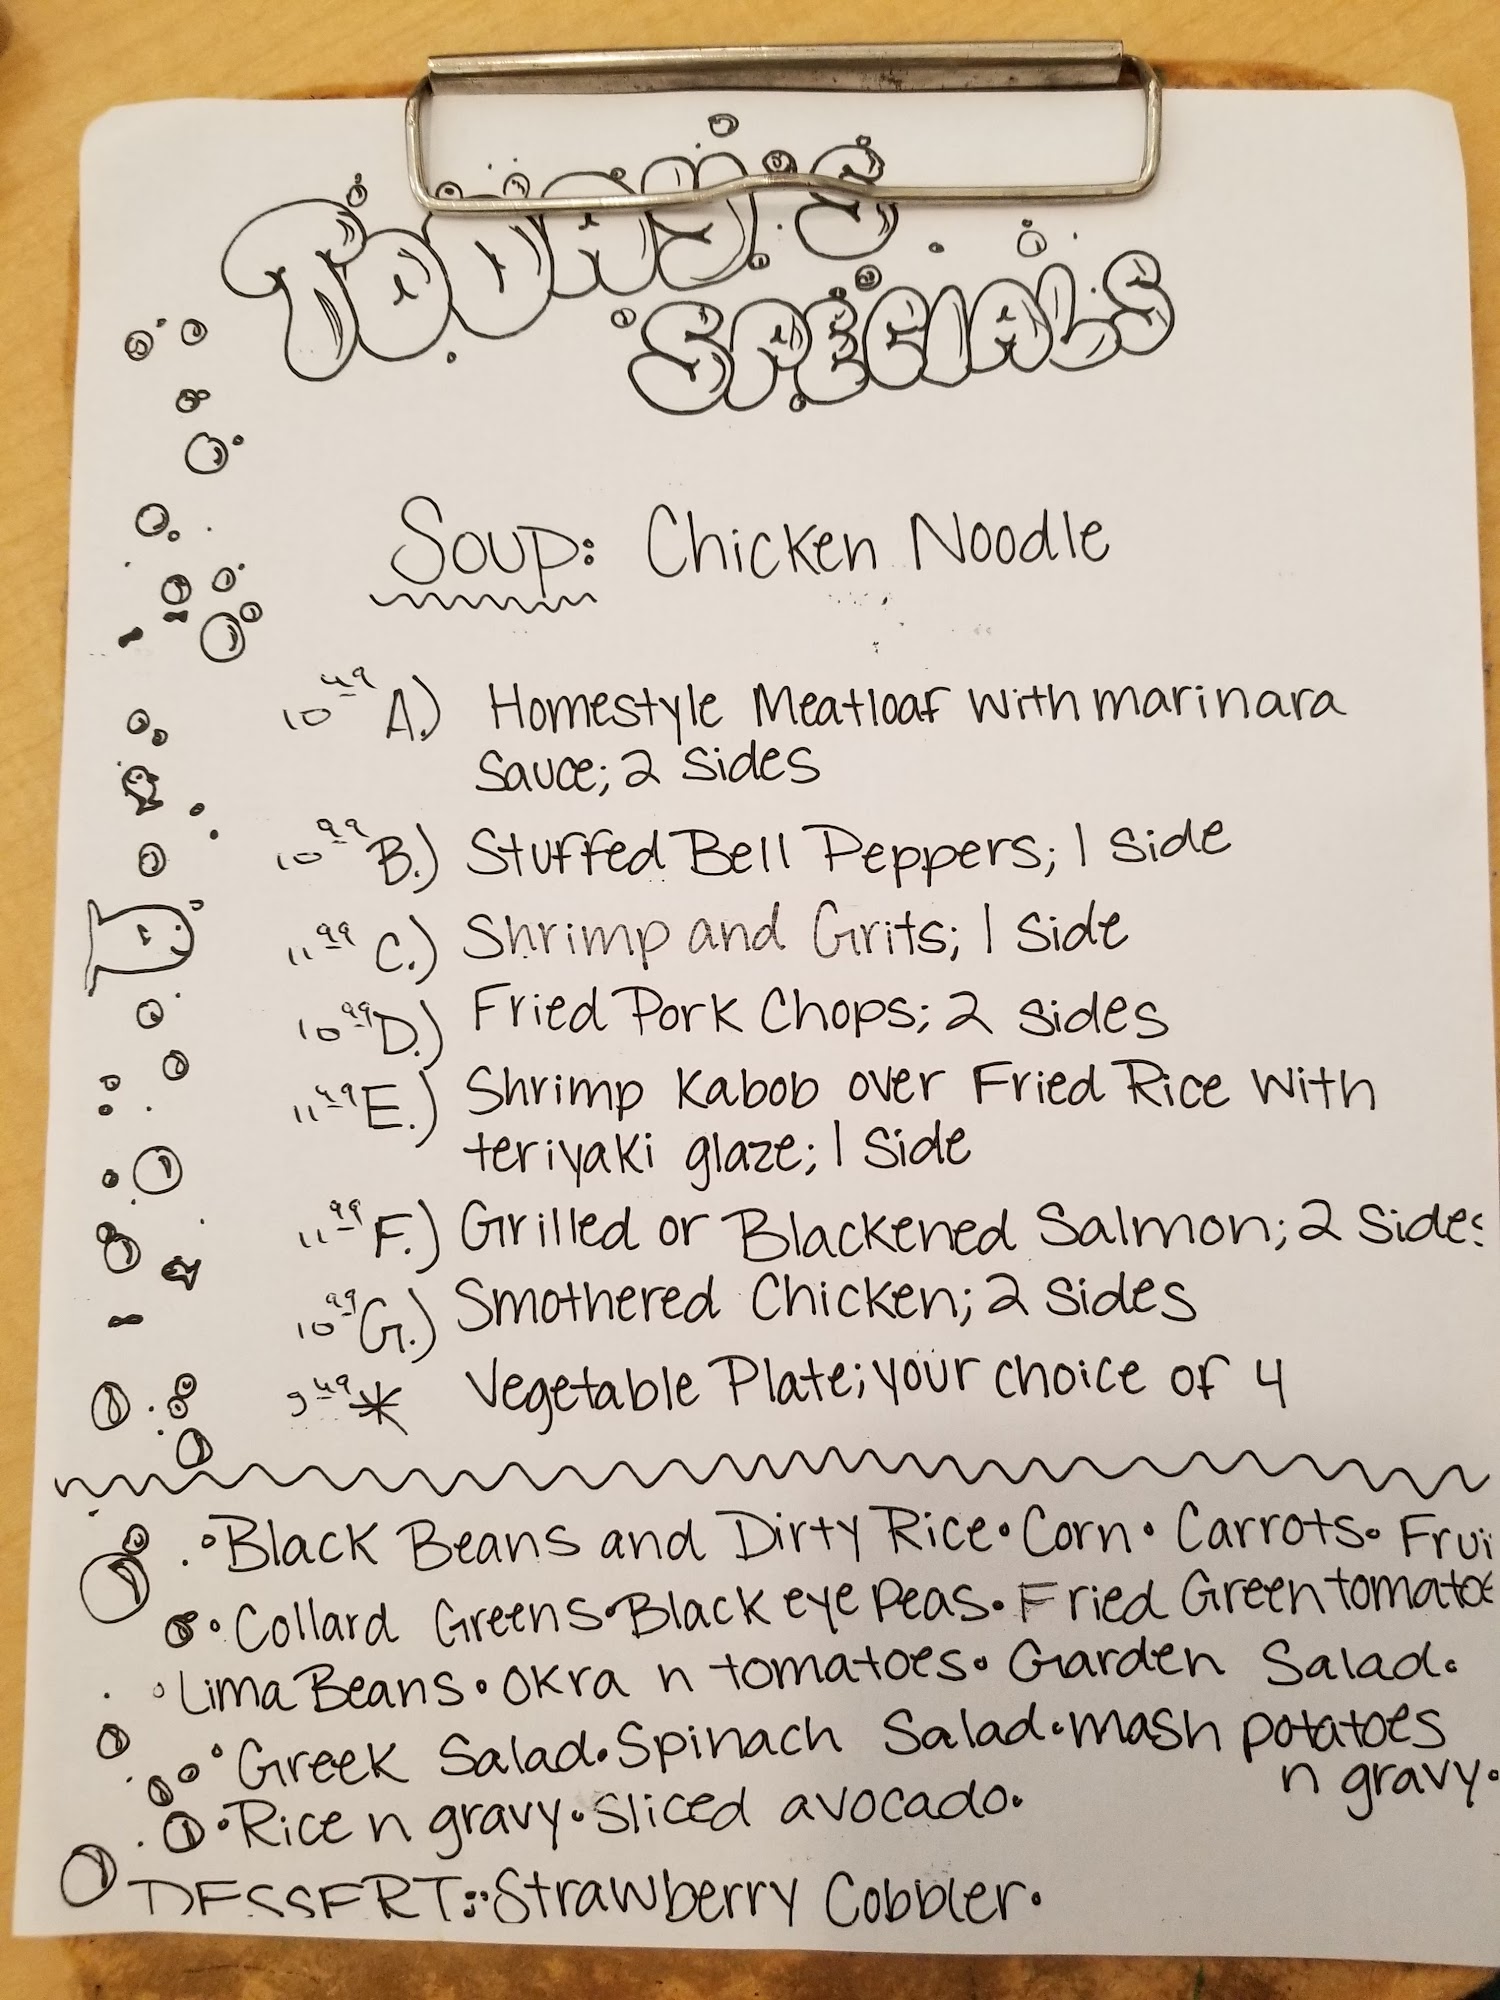 TODAY'S
SPECIALS
Soup: Chicken Noodle
10 49 A.) Homestyle Meatloaf with marinara
sauce; 2 sides
10 99 B.) Stuffed Bell Peppers; 1 side
11 99 C.) Shrimp and Grits; 1 side
10 99 D.) Fried Pork Chops; 2 sides
11 49 E.) Shrimp Kabob over Fried Rice with
teriyaki glaze; 1 side
11 99 F.) Grilled or Blackened Salmon; 2 sides
10 99 G.) Smothered Chicken; 2 sides
9 49 * Vegetable Plate; your choice of 4
• Black Beans and Dirty Rice • Corn • Carrots • Frui
• Collard Greens • Black eye Peas • Fried Green tomatoe
• Lima Beans • Okra n tomatoes • Garden Salad •
• Greek Salad • Spinach Salad • mash potatoes
n gravy •
• Rice n gravy • sliced avocado •
DESSERT:: Strawberry Cobbler •